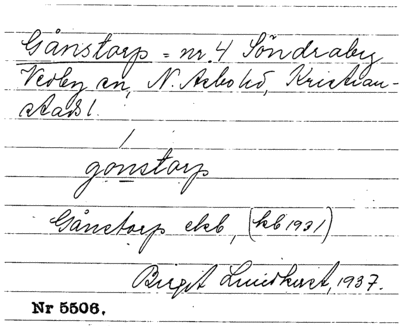 Gånstorp = nr. 4 Söndraby
Vedby sn, N. Åsbo hd, Kristian-
stads l.
gonstorp
Gånstorp ekb, (kb 1931)
Birgit Lundkvist, 1937.
Nr 5506.